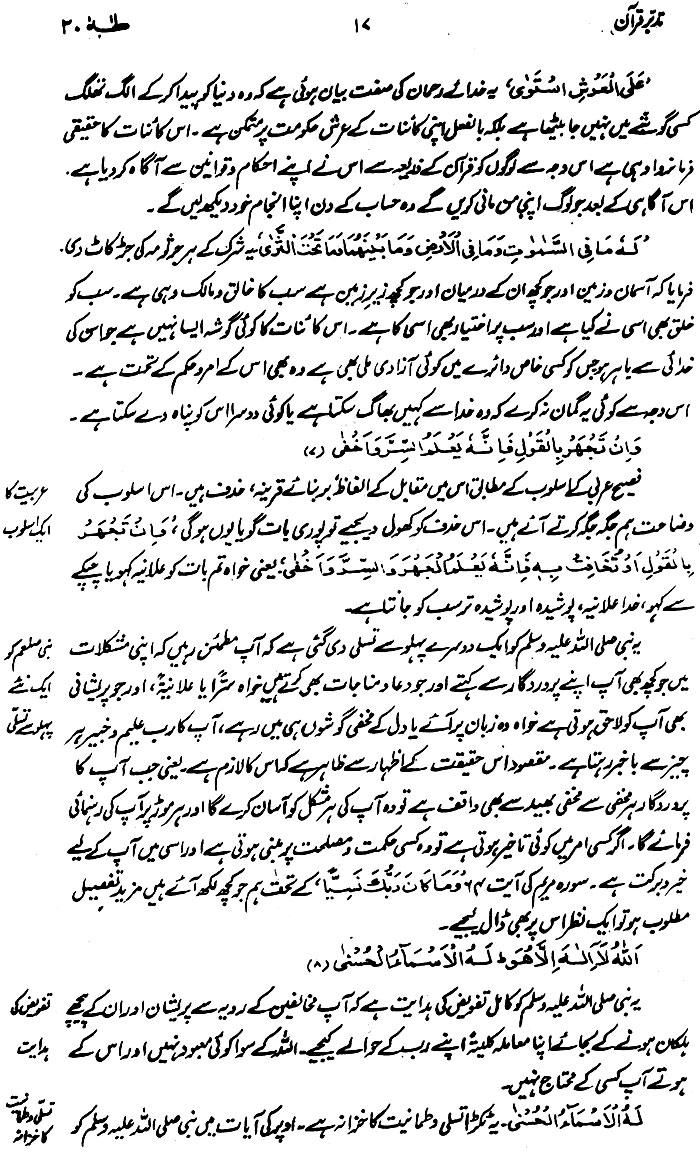 تدبر قرآن ۱۷ طٰہٰ ۲۰
’عَلَى الْعَرْشِ اسْتَوٰى‘ یہ خدائے رحمان کی صفت بیان ہوئی ہے کہ وہ دنیا کو پیدا کر کے الگ تھلگ
کسی گوشے میں نہیں جا بیٹھا ہے بلکہ بالفعل اپنی کائنات کے عرش حکومت پر متمکن ہے۔ اس کائنات کا حقیقی
فرمانروا وہی ہے اس وجہ سے لوگوں کو قرآن کے ذریعہ سے اس نے اپنے احکام و قوانین سے آگاہ کر دیا ہے۔
اس آگاہی کے بعد جو لوگ اپنی من مانی کریں گے وہ حساب کے دن اپنا انجام خود دیکھ لیں گے۔
’لَهٗ مَا فِى السَّمٰوٰتِ وَمَا فِى الْاَرْضِ وَمَا بَيْنَهُمَا وَمَا تَحْتَ الثَّرٰى‘ یہ شرک کے ہر جرثومہ کی جڑ کاٹ دی۔
فرمایا کہ آسمان و زمین اور جو کچھ ان کے درمیان اور جو کچھ زیر زمین ہے سب کا خالق و مالک وہی ہے۔ سب کو
خلق بھی اسی نے کیا ہے اور سب پر اختیار بھی اسی کا ہے۔ اس کائنات کا کوئی گوشہ ایسا نہیں ہے جو اس کی
خدائی سے باہر ہو جس کو کسی خاص دائرے میں کوئی آزادی ملی بھی ہے وہ بھی اس کے امر و حکم کے تحت ہے۔
اس وجہ سے کوئی یہ گمان نہ کرے کہ وہ خدا سے کہیں بھاگ سکتا ہے یا کوئی دوسرا اس کو پناہ دے سکتا ہے۔
وَاِنْ تَجْهَرْ بِالْقَوْلِ فَاِنَّهٗ يَعْلَمُ السِّرَّ وَاَخْفٰى (۷)
فصیح عربی کے اسلوب کے مطابق اس میں مقابل کے الفاظ بر بنائے قرینہ، حذف ہیں۔ اس اسلوب کی
عربیت کا
وضاحت ہم جگہ جگہ کرتے آئے ہیں۔ اس حذف کو کھول دیجیے تو پوری بات گویا یوں ہوگی، ’وَاِنْ تَجْهَرْ
ایک اسلوب
بِالْقَوْلِ اَوْ تُخَافِتْ بِهٖ فَاِنَّهٗ يَعْلَمُ الْجَهْرَ وَالسِّرَّ وَاَخْفٰى‘؛ یعنی خواہ تم بات کو علانیہ کہو یا چپکے
سے کہو، خدا علانیہ، پوشیدہ اور پوشیدہ تر سب کو جانتا ہے۔
یہ نبی صلی اللہ علیہ وسلم کو ایک دوسرے پہلو سے تسلی دی گئی ہے کہ آپ مطمئن رہیں کہ اپنی مشکلات
نبی صلعم کو
میں جو کچھ بھی آپ اپنے پروردگار سے کہتے اور جو دعا و مناجات بھی کرتے ہیں خواہ سرًّا یا علانیۃً، اور جو پریشانی
ایک نئے
بھی آپ کو لاحق ہوتی ہے خواہ وہ زبان پر آئے یا دل کے مخفی گوشوں ہی میں رہے، آپ کا رب علیم و خبیر ہر
پہلو سے تسلی
چیز سے باخبر رہتا ہے۔ مقصود اس حقیقت کے اظہار سے ظاہر ہے کہ اس کا لازم ہے۔ یعنی جب آپ کا
پروردگار ہر مخفی سے مخفی بھید سے بھی واقف ہے تو وہ آپ کی ہر مشکل کو آسان کرے گا اور ہر موڑ پر آپ کی رہنمائی
فرمائے گا۔ اگر کسی امر میں کوئی تاخیر ہوتی ہے تو وہ کسی حکمت و مصلحت پر مبنی ہوتی ہے اور اسی میں آپ کے لیے
خیر و برکت ہے۔ سورہ مریم کی آیت ۶۴ ’وَمَا كَانَ رَبُّكَ نَسِيًّا‘ کے تحت ہم جو کچھ لکھ آئے ہیں مزید تفصیل
مطلوب ہو تو ایک نظر اس پر بھی ڈال لیجیے۔
اَللّٰهُ لَآ اِلٰهَ اِلَّا هُوَ ط لَهُ الْاَسْمَآءُ الْحُسْنٰى (۸)
یہ نبی صلی اللہ علیہ وسلم کو کامل تفویض کی ہدایت ہے کہ آپ مخالفین کے رویہ سے پریشان اور ان کے پیچھے
تفویض کی
ہلکان ہونے کے بجائے اپنا معاملہ کلیۃً اپنے رب کے حوالے کیجیے۔ اللہ کے سوا کوئی معبود نہیں اور اس کے
ہدایت
ہوتے آپ کسی کے محتاج نہیں۔
لَهُ الْاَسْمَآءُ الْحُسْنٰى۔ یہ ٹکڑا تسلی و طمانیت کا خزانہ ہے۔ اوپر کی آیات میں نبی صلی اللہ علیہ وسلم کو
تسلی و طمانیت
کا خزانہ